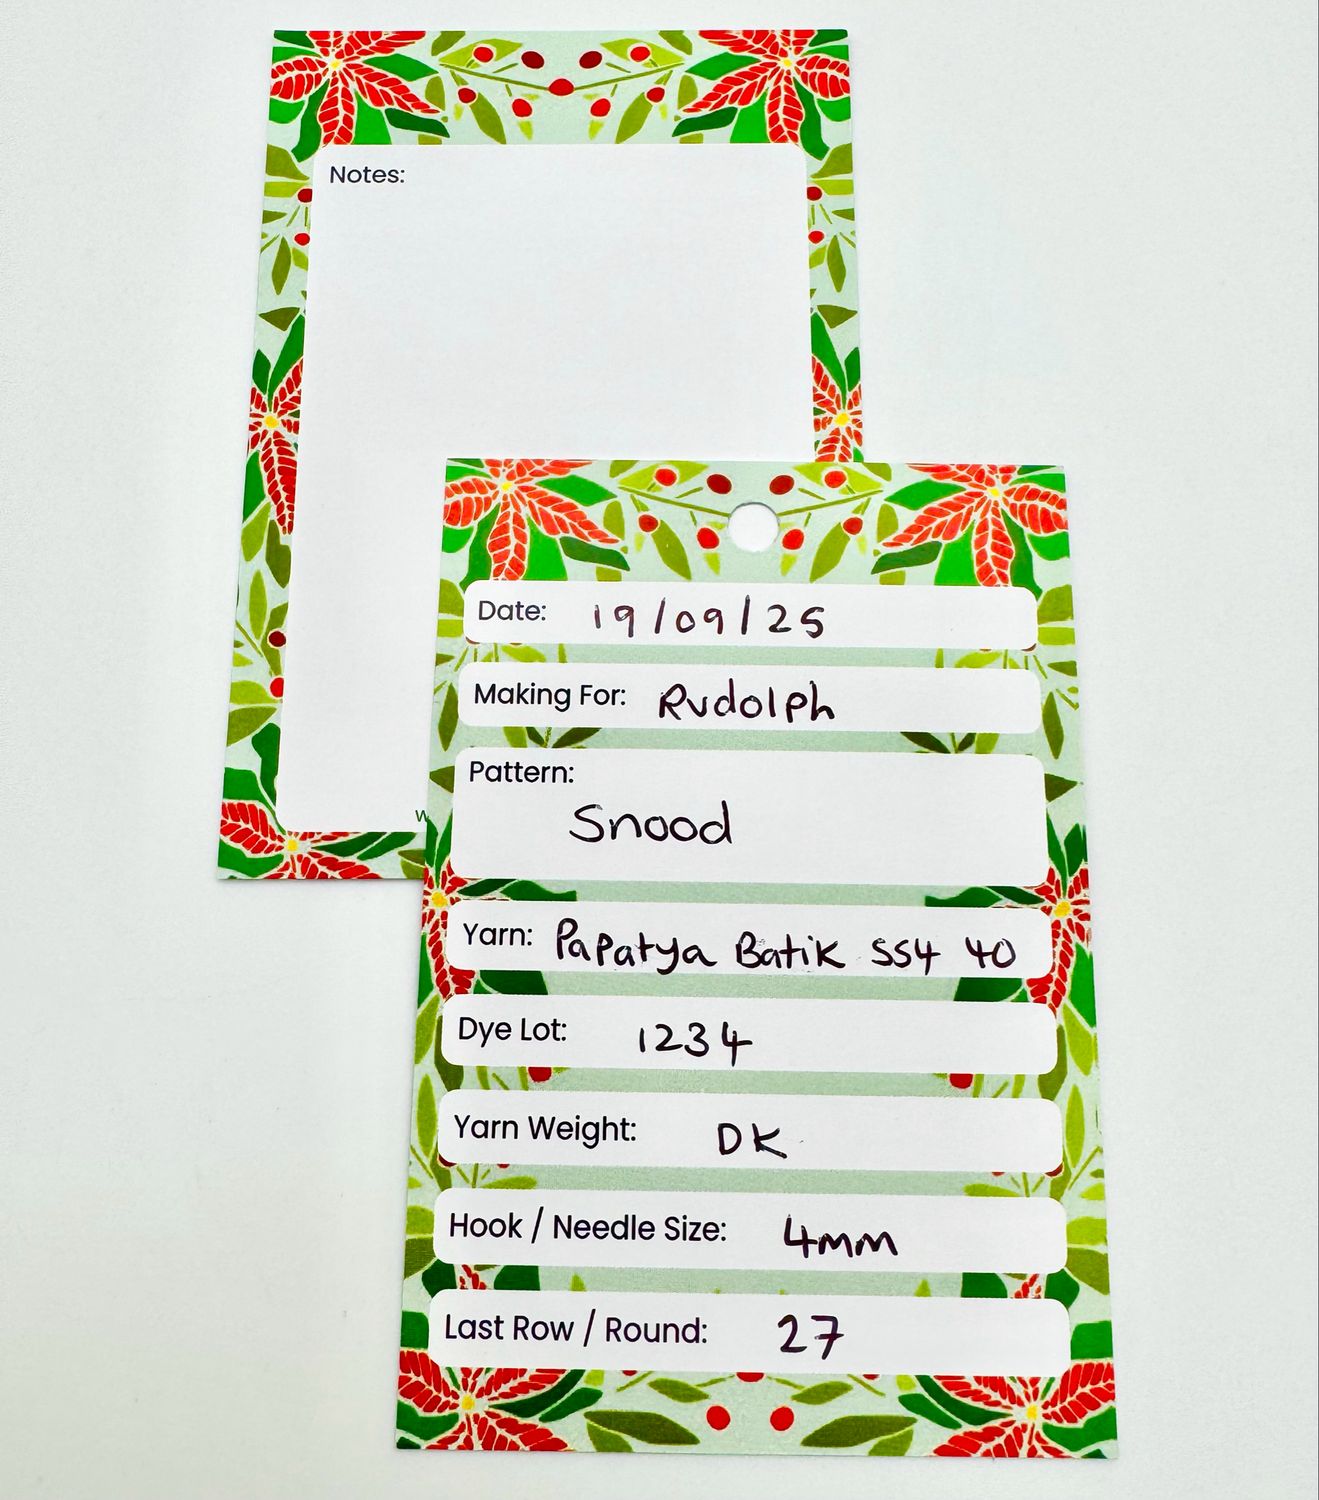 Notes:
w
Date: 19/09/25
Making For: Rudolph
Pattern:
Snood
Yarn: Papatya Batik 554 40
Dye Lot: 1234
Yarn Weight: DK
Hook / Needle Size: 4mm
Last Row / Round: 27